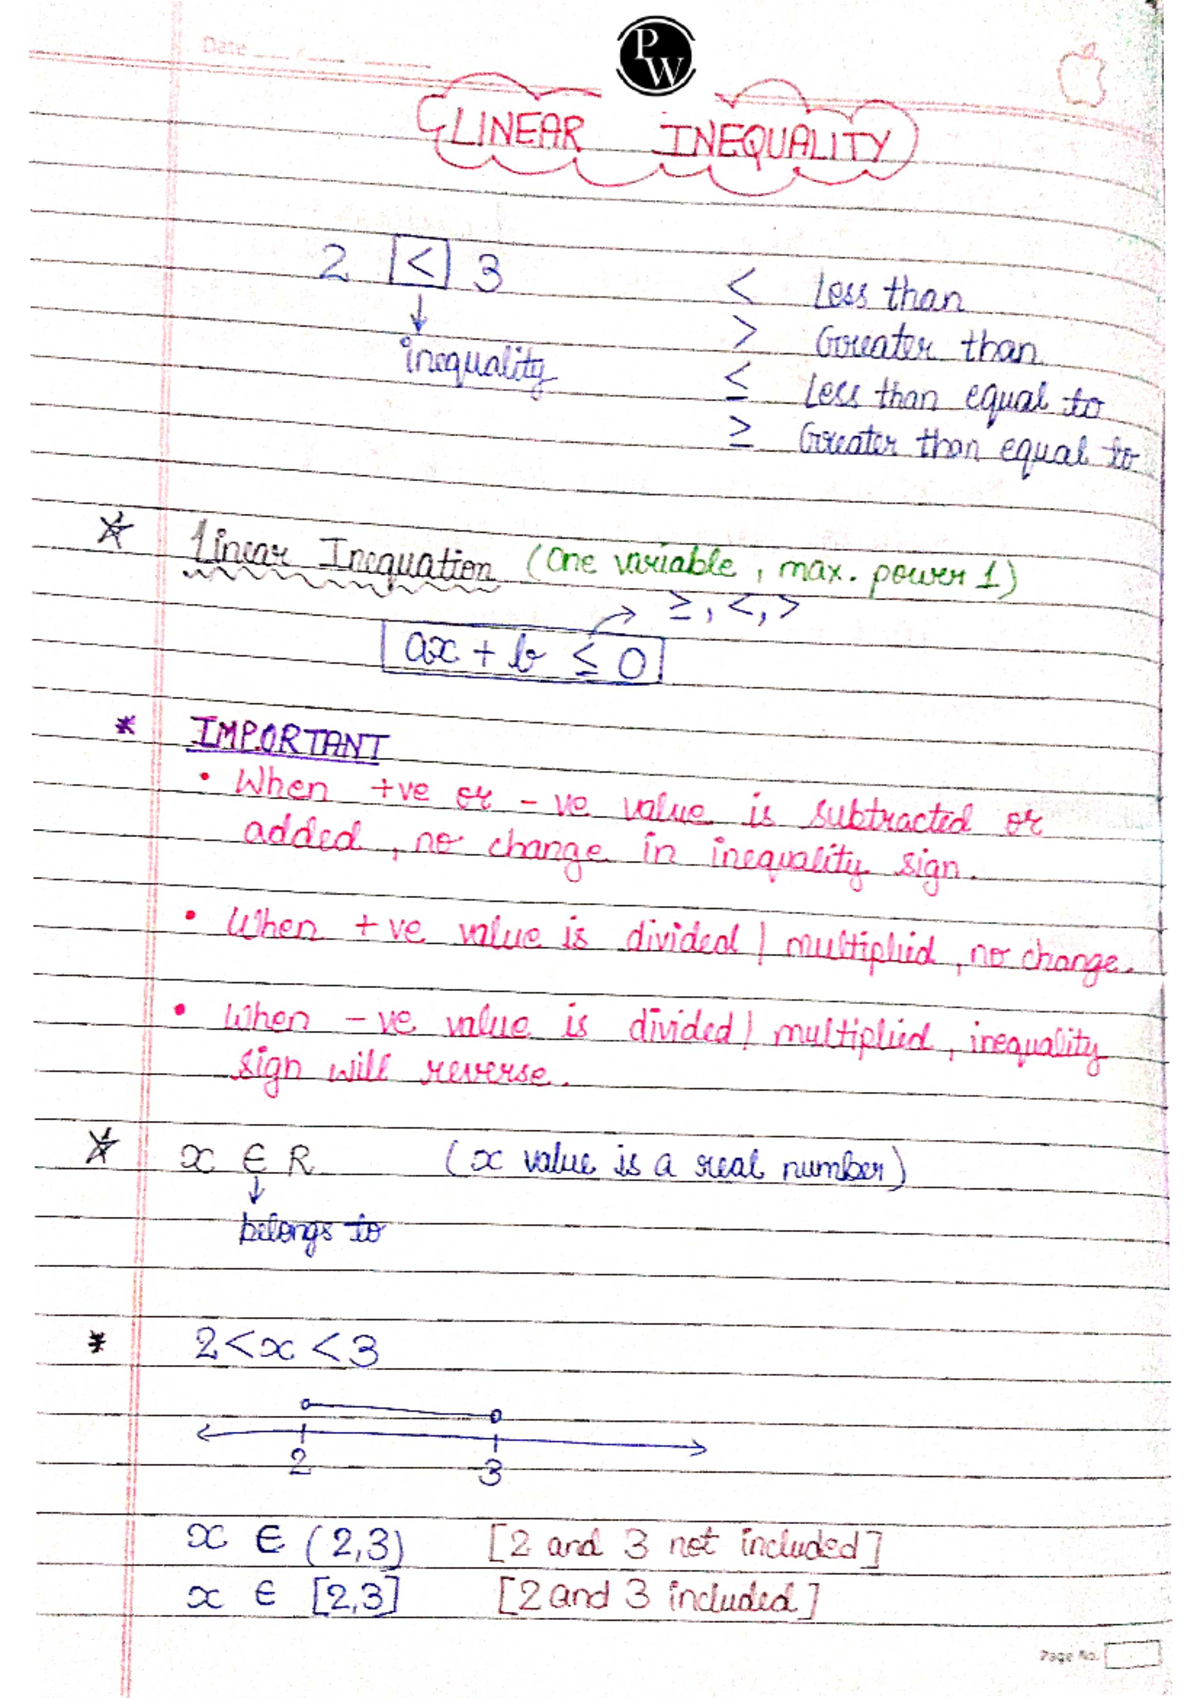 Date
PW
LINEAR INEQUALITY
2 < 3
inequality
< Less than
> Greater than
≤ Less than equal to
≥ Greater than equal to
Linear Inequation (One variable, max. power 1)
≥, <, >
ax + b ≤ 0
* IMPORTANT
• When +ve or -ve value is subtracted or
added, no change in inequality sign.
• When +ve value is divided | multiplied, no change.
• When -ve value is divided | multiplied, inequality
sign will reverse.
x ∈ R (x value is a real number)
belongs to
* 2<x<3
2 3
x ∈ (2,3) [2 and 3 not included]
x ∈ [2,3] [2 and 3 included]
Page No.